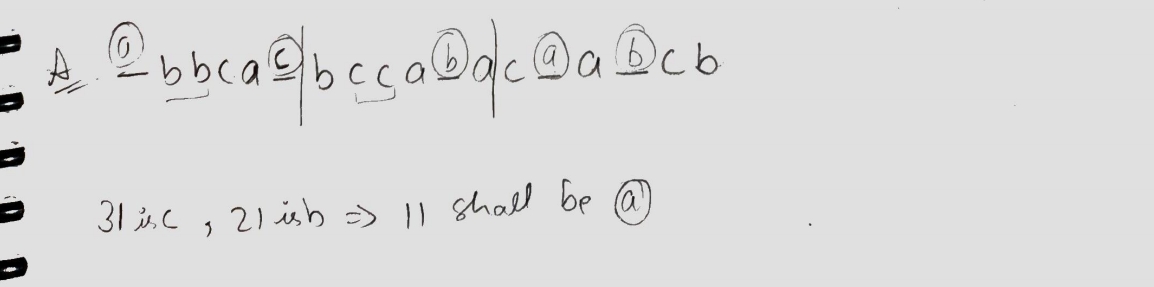 A. a b b c a c | b c c a b a | c a a b c b
31 is c, 21 is b => 11 shall be a